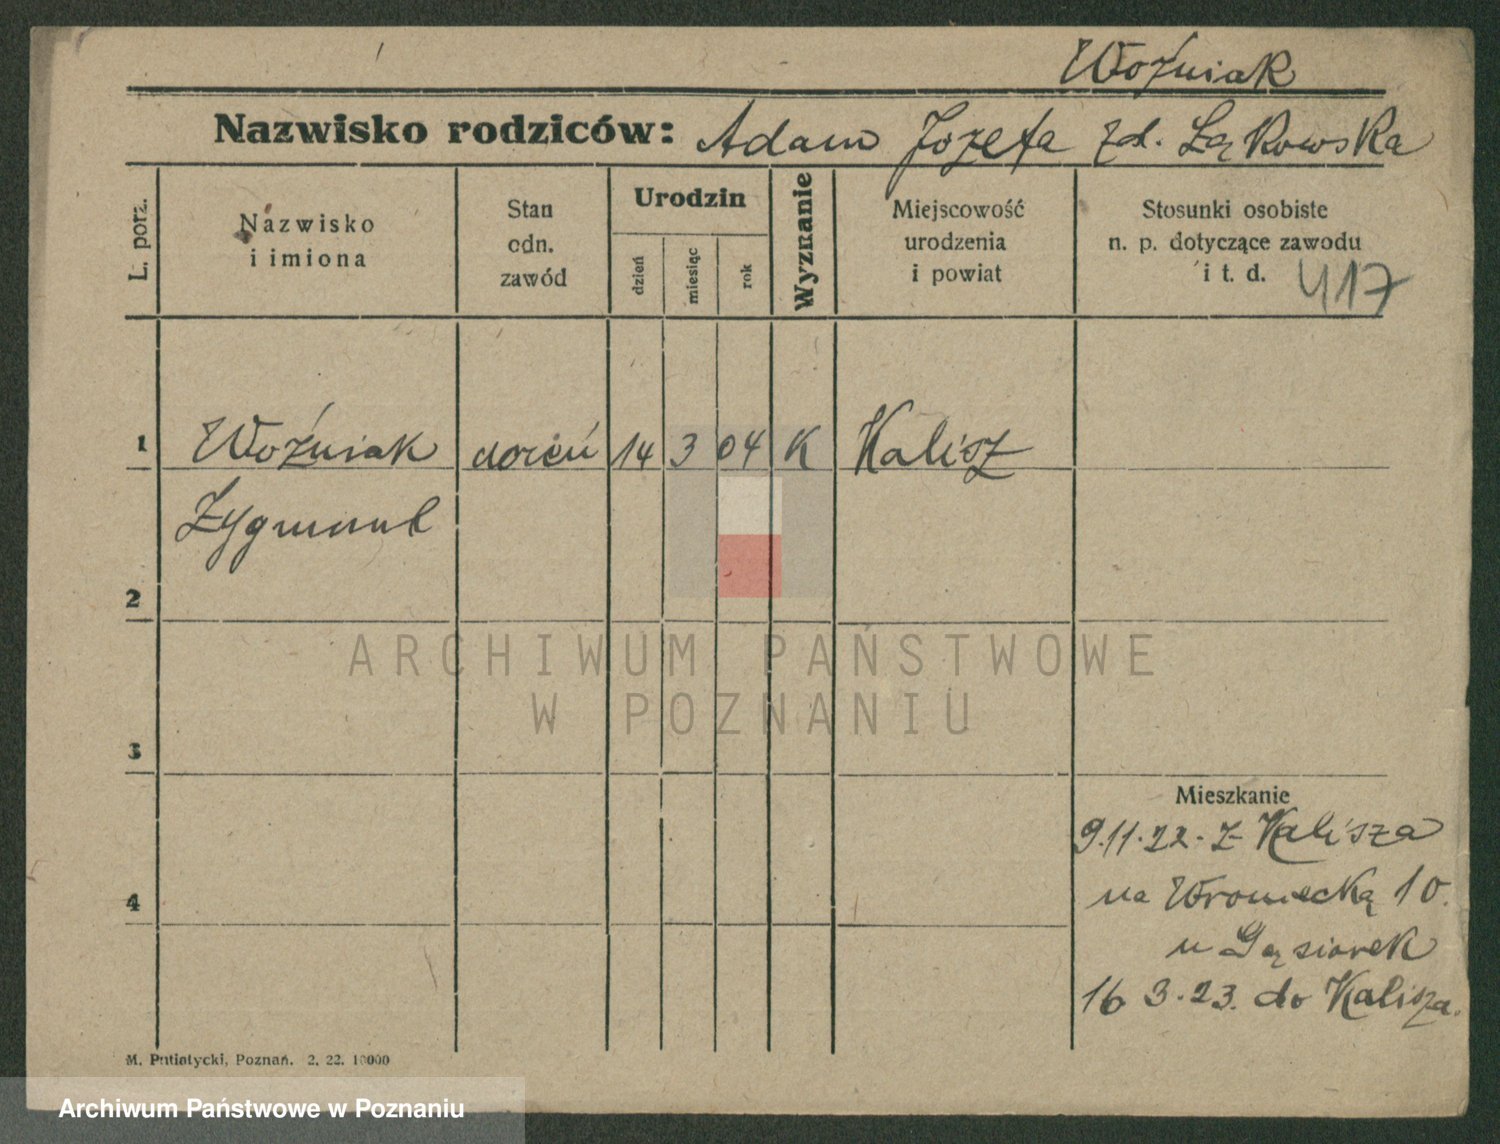 Woźniak
Nazwisko rodziców: Adam Jozefa zd. Łąkowska
L. porz.
Nazwisko
i imiona
Stan
odn.
zawód
Urodzin
dzień
miesiąc
rok
Wyznanie
Miejscowość
urodzenia
i powiat
Stosunki osobiste
n. p. dotyczące zawodu
i t. d. 417
1 Woźniak 14 3 04 K Kalisz
Zygmunt
2
ARCHIWUM PAŃSTWOWE
W POZNANIU
3
Mieszkanie
9.11.22. z Kalisza
4
na Wroniecką 10.
u Gąsiorek
16 3.23. do Kalisza.
M. Putiatycki, Poznań. 2. 22. 10000
Archiwum Państwowe w Poznaniu